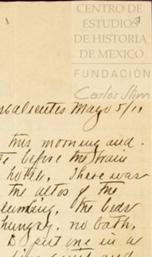 CENTRO DE
ESTUDIOS
DE HISTORIA
DE MEXICO
FUNDACIÓN
Carlos Slim
Mayo 5/11
this morning and
before the train
hotel. There was
the altos of the
plumbing, the beds
hungry, no bath.
I put one in a